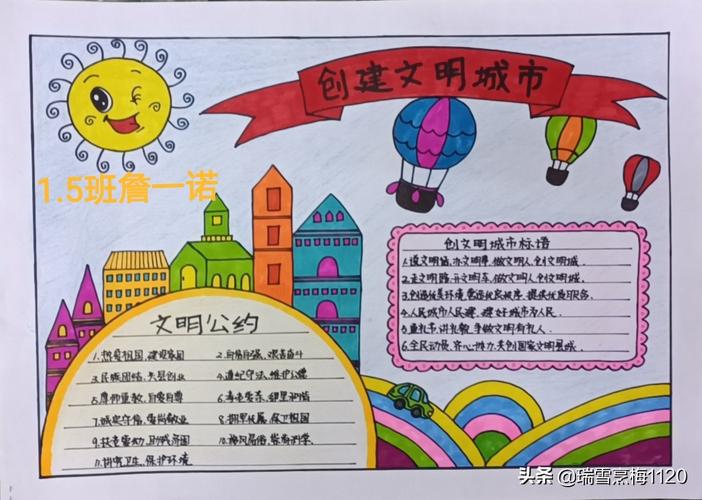 创建文明城市
1.5班詹一诺
创文明城市标语
1.说文明话,办文明事,做文明人,创文明城。
2.走文明路,开文明车,做文明人,创文明城。
3.创造优美环境,营造优良秩序,提供优质服务。
4.人民城市人民建,建好城市为人民。
5.重礼节,讲礼貌,争做文明有礼人。
6.全民动员,齐心协力,共创国家文明县城。
文明公约
1.热爱祖国,建设家园 2.自信自强,艰苦奋斗
3.民族团结,共县创业 4.遵纪守法,维护公德
5.尊师重教,自爱自尊 6.尊老爱幼,邻里和谐
7.诚实守信,爱岗敬业 8.拥军优属,保卫祖国
9.扶贫帮幼,助残济困 10.移风易俗,崇尚科学
11.讲究卫生,保护环境
头条 @瑞雪烹梅1120